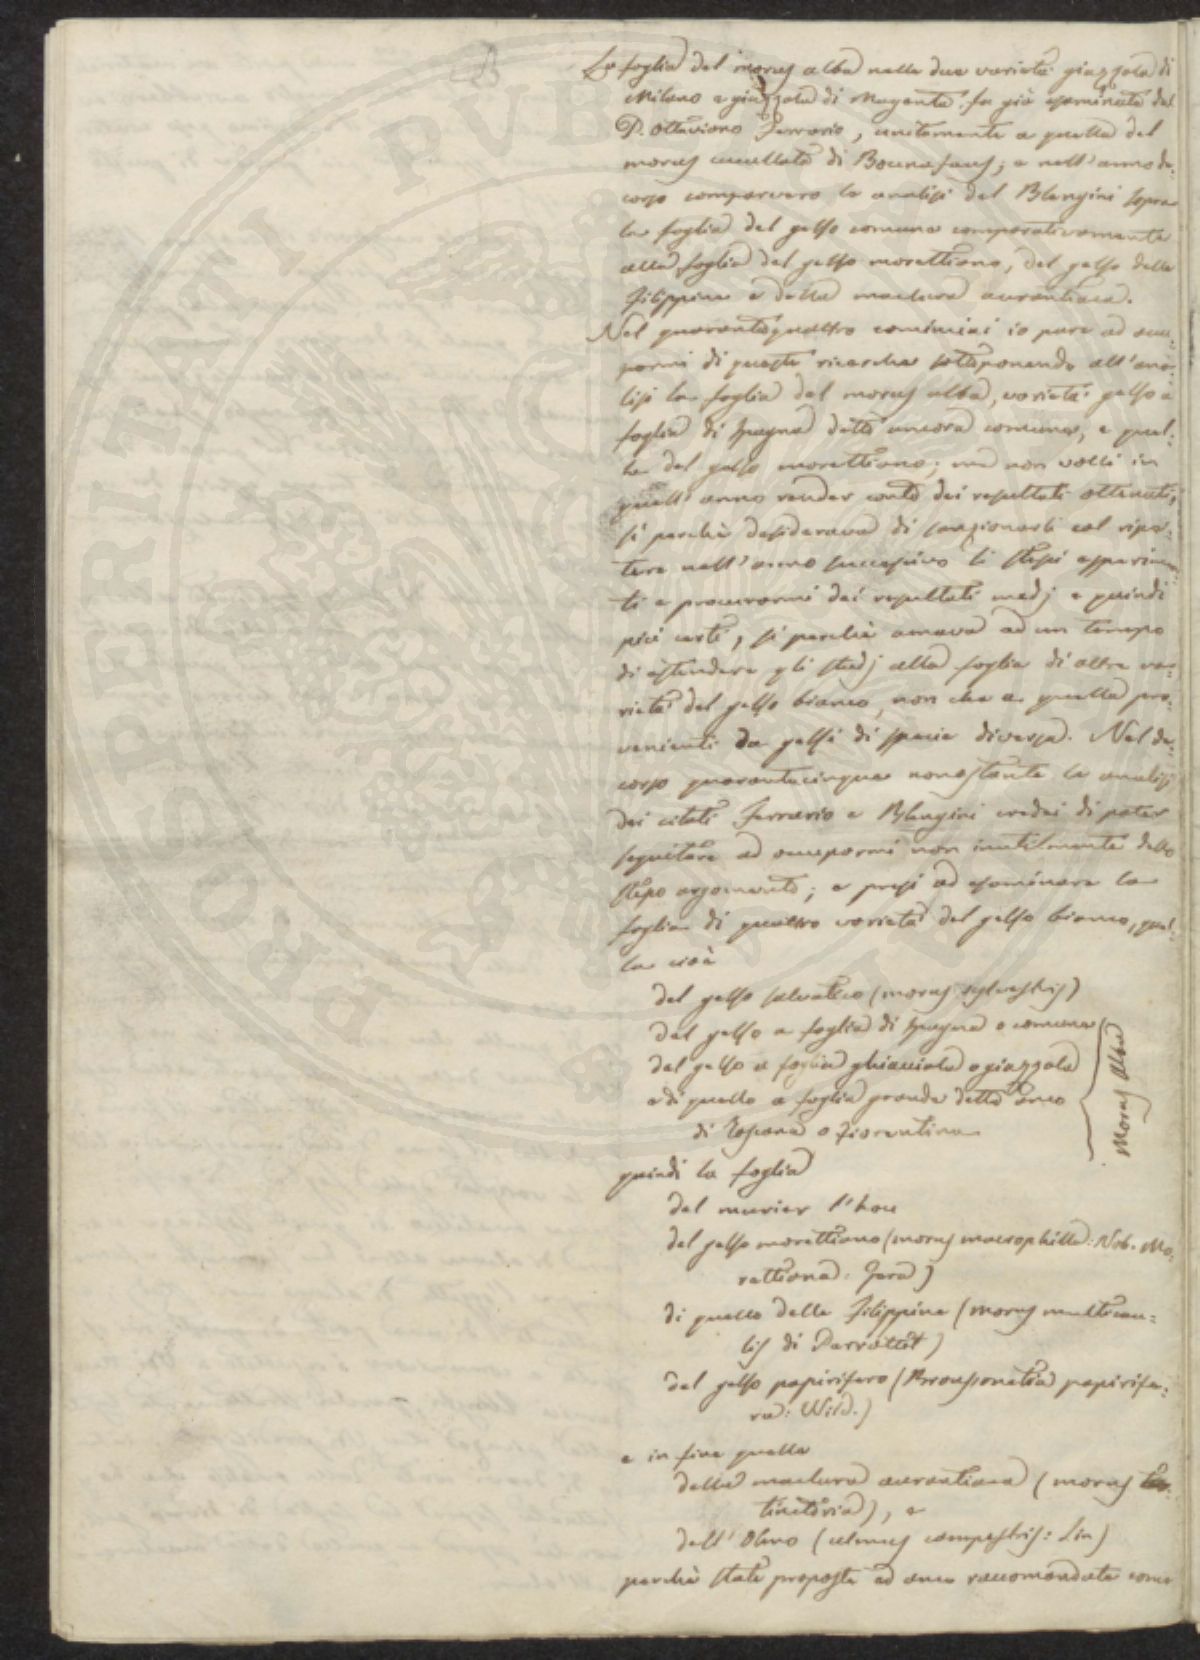 La foglia del morus alba nelle due varietà giazzola di
Milano e giazzola di Magenta fu già esaminata dal
D. Ottaviano Ferrario, unitamente a quella del
morus cucullata di Bounafaus; e nell'anno de-
corso comparvero le analisi del Blengini sopra
la foglia del gelso comune comparativamente
alla foglia del gelso morettiano, del gelso delle
Filippine e della maclura aurantiaca.
Nel quarantaquattro cominciai io pure ad occu-
parmi di queste ricerche sottoponendo all'ana-
lisi la foglia del morus alba, varietà gelso a
foglia di Spagna detto ancora comune, e quel-
la del gelso morettiano; ma non volli in
quell'anno render conto dei resultati ottenuti,
sì perchè desiderava di sanzionarli col ripe-
tere nell'anno successivo li stessi esperimen-
ti e procurarmi dei resultati medj e quindi
più certi, sì perchè amava ad un tempo
di estendere gli studj alla foglia di altre va-
rietà del gelso bianco, non che a quella pro-
venienti da gelsi di specie diversa. Nel de-
corso quarantacinque nonostante le analisi
dei citati Ferrario e Blengini credei di poter
seguitare ad occuparmi non inutilmente dello
stesso argomento; e presi ad esaminare la
foglia di quattro varietà del gelso bianco, quel-
la cioè
del gelso salvatico (morus sylvestris)
del gelso a foglia di Spagna o comune
del gelso a foglia ghiacciola o giazzola
e di quello a foglia grande detto anco
di Toscana o Fiorentina
Morus Alba
quindi la foglia
del murier l'hou
del gelso morettiano (morus macrophilla: Nob. Mo-
rettiana: Jara)
di quello delle Filippine (morus multicau-
lis di Parrottet)
del gelso papirifero (Broussonetia papirife-
ra: Wild.)
e in fine quella
della maclura aurantiaca (morus
tinctoria), e
dell'Olmo (ulmus campestris: Lin)
perchè state proposte ed anco raccomandate come